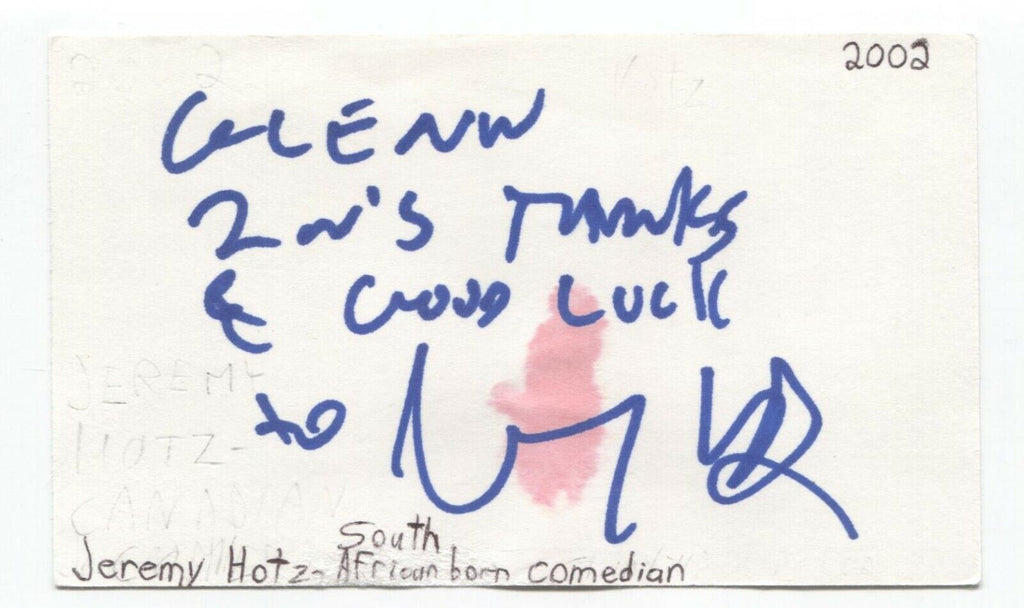 2002
GLENN
2N'S THANKS
& GOOD LUCK
to
JEREMY
HOTZ-
CANADIAN
South
Jeremy Hotz- African born comedian